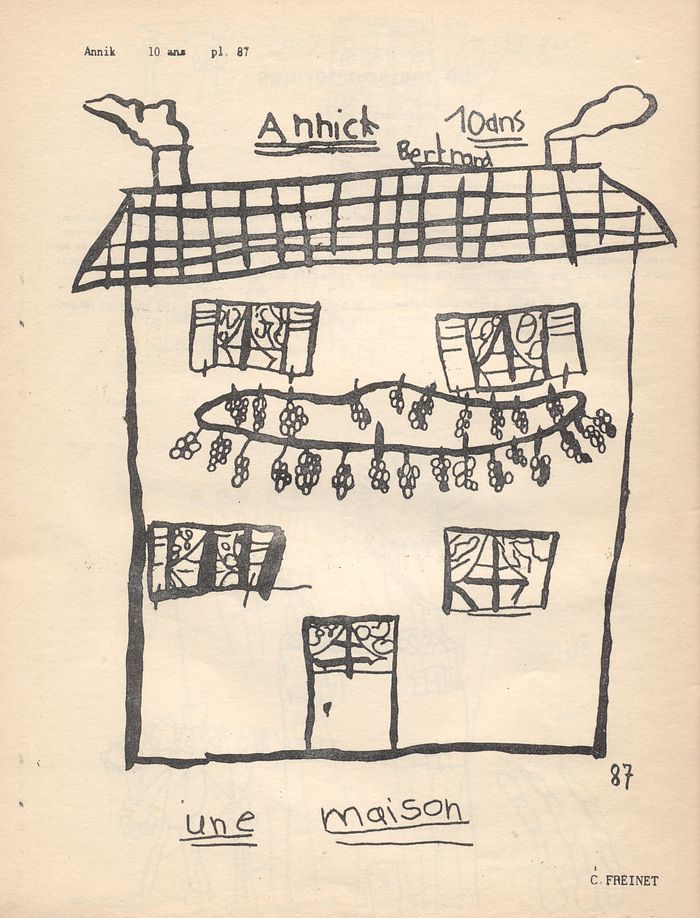 Annik 10 ans pl. 87
Annick 10ans
Bertrand
87
une maison
C. FREINET